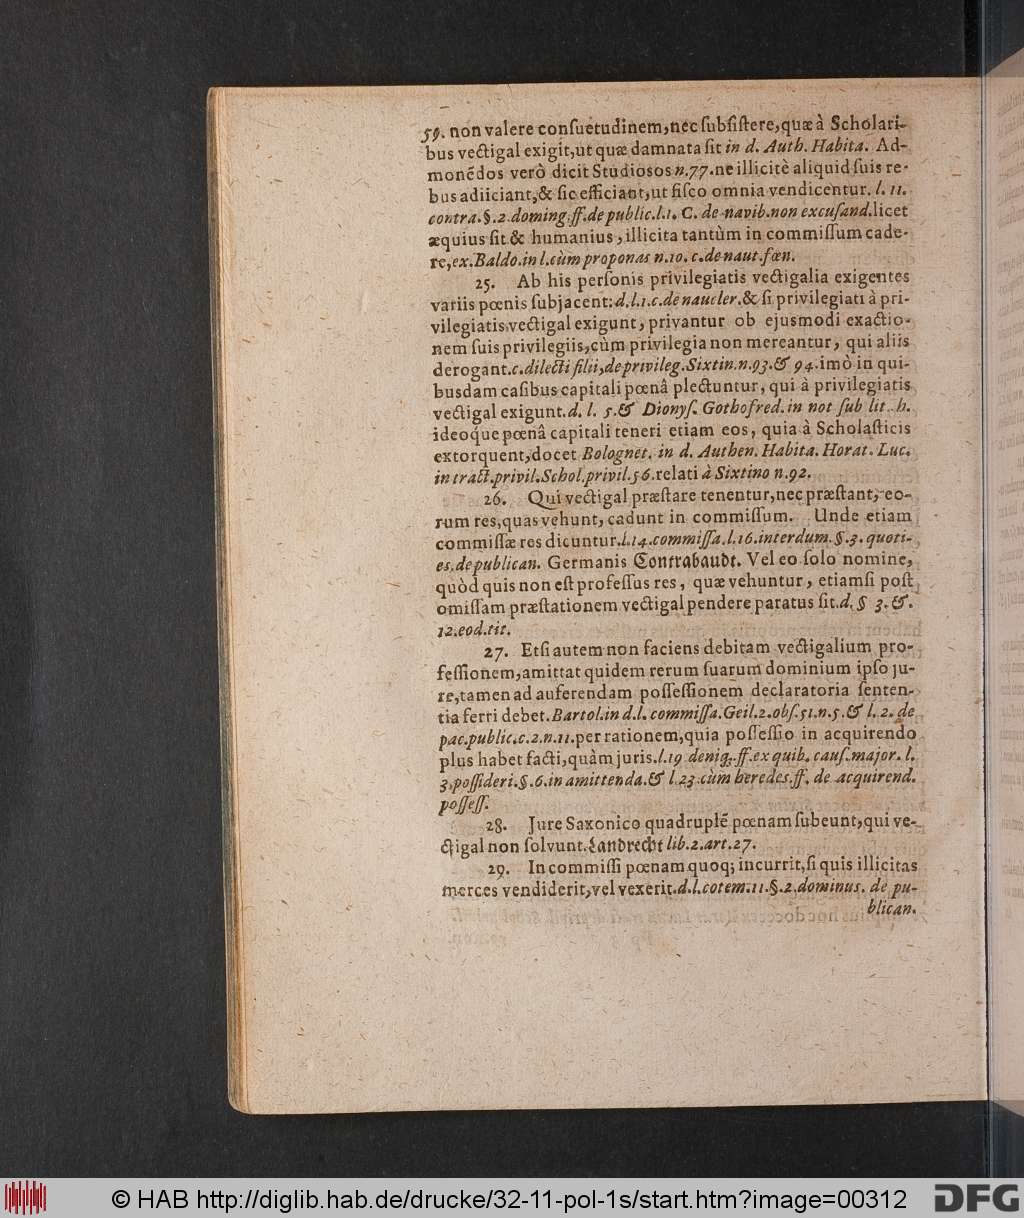 59. non valere conſuetudinem, nec ſubſiſtere, quæ à Scholari-
bus vectigal exigit, ut quæ damnata ſit in d. Auth. Habita. Ad-
monẽdos verò dicit Studiosos n. 77. ne illicitè aliquid ſuis re-
bus adiiciant, & ſic efficiant, ut fiſco omnia vendicentur. l. 11.
contra. §. 2. doming. ff. de public. l. 1. C. de navib. non excuſand. licet
æquius ſit & humanius, illicita tantùm in commiſſum cade-
re, ex. Baldo. in l. cùm proponas n. 10. c. de naut. fœn.
25. Ab his perſonis privilegiatis vectigalia exigentes
variis pœnis ſubjacent: d. l. 1. c. de naucler. & ſi privilegiati à pri-
vilegiatis vectigal exigunt, privantur ob ejusmodi exactio-
nem ſuis privilegiis, cùm privilegia non mereantur, qui aliis
derogant. c. dilecti filii, de privileg. Sixtin. n. 93. & 94. imò in qui-
busdam caſibus capitali pœnâ plectuntur, qui à privilegiatis
vectigal exigunt. d. l. 5. & Dionyſ. Gothofred. in not ſub lit. h.
ideoq́ue pœnâ capitali teneri etiam eos, quia à Scholaſticis
extorquent, docet Bolognet. in d. Authen. Habita. Horat. Luc.
in tract. privil. Schol. privil. 56. relati à Sixtino n. 92.
26. Qui vectigal præſtare tenentur, nec præſtant, eo-
rum res, quas vehunt, cadunt in commiſſum. Unde etiam
commiſſæ res dicuntur. l. 14. commiſſa. l. 16. interdum. §. 3. quoti-
es. de publican. Germanis Contrabaudt. Vel eo ſolo nomine,
quòd quis non eſt profeſſus res, quæ vehuntur, etiamſi poſt
omiſſam præſtationem vectigal pendere paratus ſit. d. § 3. &.
12. eod. tit.
27. Etſi autem non faciens debitam vectigalium pro-
feſſionem, amittat quidem rerum ſuarum dominium ipſo ju-
re, tamen ad auferendam poſſeſſionem declaratoria ſenten-
tia ferri debet. Bartol. in d. l. commiſſa. Geil. 2. obſ. 51. n. 5. & l. 2. de
pac. public. c. 2. n. 11. per rationem, quia poſſeſſio in acquirendo
plus habet facti, quàm juris. l. 19 deniq;. ff. ex quib. cauſ. major. l.
3. poſſideri. §. 6. in amittenda. & l. 23. cùm heredes. ff. de acquirend.
poſſeſſ.
28. Jure Saxonico quadruplẽ pœnam ſubeunt, qui ve-
ctigal non ſolvunt. Landrecht lib. 2. art. 27.
29. In commiſſi pœnam quoq; incurrit, ſi quis illicitas
merces vendiderit, vel vexerit. d. l. cotem. 11. §. 2. dominus. de pu-
blican.
© HAB http://diglib.hab.de/drucke/32-11-pol-1s/start.htm?image=00312
DFG